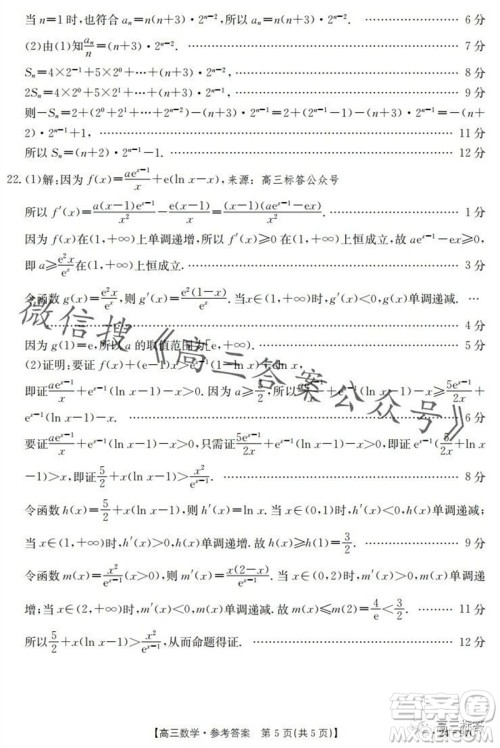 当 n=1 时，也符合 aₙ=n(n+3)·2ⁿ⁻²，所以 aₙ=n(n+3)·2ⁿ⁻². …… 6 分
(2)由(1)知 aₙ/n=(n+3)·2ⁿ⁻². …… 7 分
Sₙ=4×2⁻¹+5×2⁰+…+(n+3)·2ⁿ⁻²， …… 8 分
2Sₙ=4×2⁰+5×2¹+…+(n+3)·2ⁿ⁻¹， …… 9 分
则-Sₙ=2+(2⁰+2¹+…+2ⁿ⁻²)-(n+3)·2ⁿ⁻¹=2+(2ⁿ⁻¹-1)-(n+3)·2ⁿ⁻¹=-(n+
2)·2ⁿ⁻¹+1， …… 11 分
所以 Sₙ=(n+2)·2ⁿ⁻¹-1. …… 12 分
22.(1)解:因为 f(x)=aeˣ⁻¹/x+e(ln x-x)，来源：高三标答公众号
所以 f′(x)=a(x-1)eˣ⁻¹/x²-e(x-1)/x=(x-1)(aeˣ⁻¹-ex)/x². …… 1 分
因为 f(x)在(1,+∞)上单调递增，所以 f′(x)≥0 在(1,+∞)上恒成立，故 aeˣ⁻¹-ex≥0，
即 a≥e²x/eˣ 在(1,+∞)上恒成立. …… 3 分
令函数 g(x)=e²x/eˣ，则 g′(x)=e²(1-x)/eˣ. 当 x∈(1,+∞)时，g′(x)<0，g(x)单调递减.
…… 4 分
因为 g(1)=e，所以 a 的取值范围为[e,+∞). …… 5 分
(2)证明:要证 f(x)+(e-1)x>
即证 aeˣ⁻¹/x+eˣ⁻¹(ln x-1)-x>0. 因为 a≥5/2，所以 aeˣ⁻¹/x+eˣ⁻¹(ln x-1)-x≥5eˣ⁻¹/2x+
eˣ⁻¹(ln x-1)-x. …… 6 分
要证 aeˣ⁻¹/x+eˣ⁻¹(ln x-1)-x>0，只需证 5eˣ⁻¹/2x+eˣ⁻¹(ln x-1)-x>0，即证 5/2+x(ln x
-1)-x²/eˣ⁻¹>0，即证 5/2+x(ln x-1)>x²/eˣ⁻¹. …… 8 分
令函数 h(x)=5/2+x(ln x-1)，则 h′(x)=ln x. 当 x∈(0,1)时，h′(x)<0，h(x)单调递减.
当 x∈(1,+∞)时，h′(x)>0，h(x)单调递增. 故 h(x)≥h(1)=3/2. …… 9 分
令函数 m(x)=x²/eˣ⁻¹(x>0)，则 m′(x)=x(2-x)/eˣ⁻¹. 当 x∈(0,2)时，m′(x)>0，m(x)单调递
增；当 x∈(2,+∞)时，m′(x)<0，m(x)单调递减. 故 m(x)≤m(2)=4/e<3/2. …… 11 分
所以 5/2+x(ln x-1)>x²/eˣ⁻¹，从而命题得证. …… 12 分
微信搜《高三答案公众号》
【高三数学·参考答案 第 5 页(共 5 页)】
高三标答